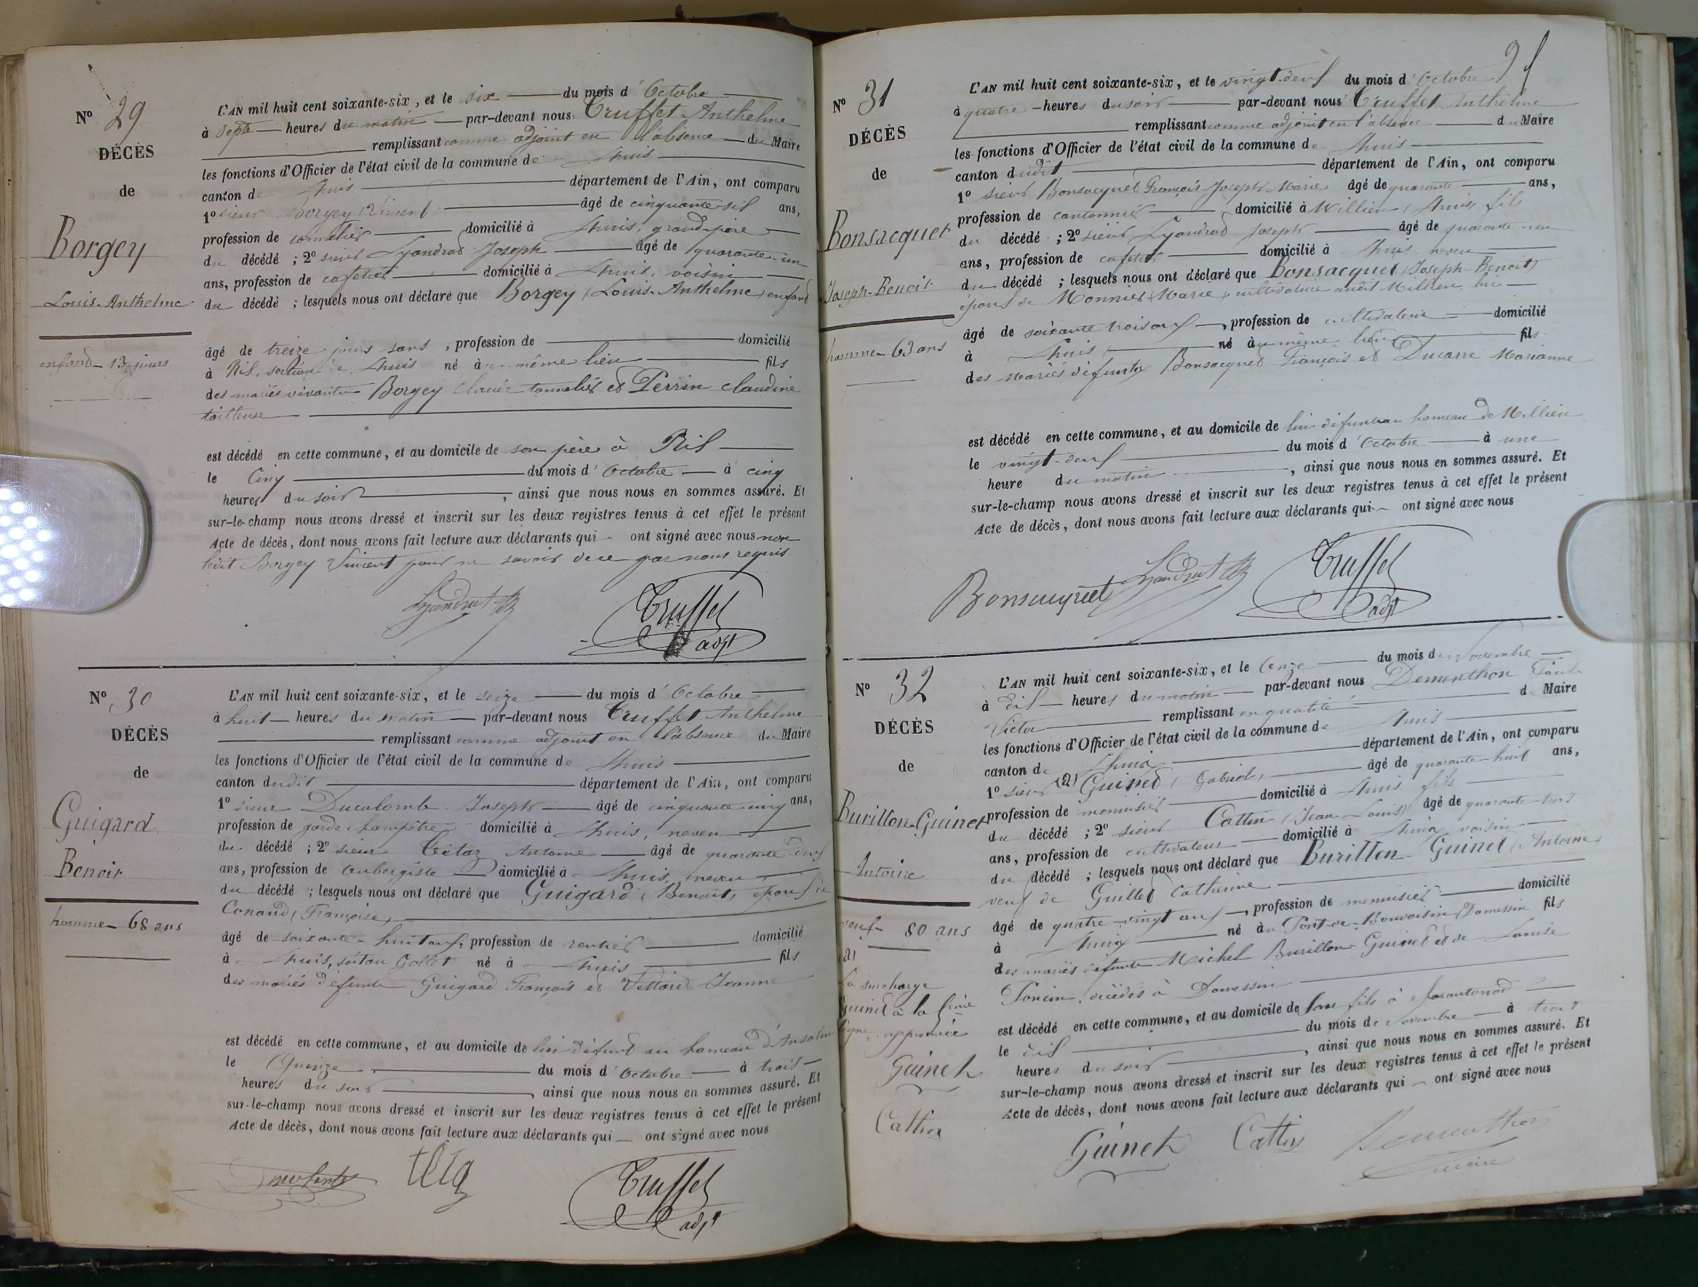 Nº 29
DÉCÈS
de
Borgey
Louis-Anthelme
enfant - 13 jours
L'AN mil huit cent soixante-six, et le six du mois d'Octobre
à sept heures du matin par-devant nous Truffet Anthelme
remplissant comme adjoint en l'absence du Maire
les fonctions d'Officier de l'état civil de la commune de Lhuis
canton de Lhuis département de l'Ain, ont comparu
1º sieur Borgey Vincent âgé de cinquante six ans,
profession de tonnelier domicilié à Lhuis, grand-père
du décédé ; 2º sieur Lyandrat Joseph âgé de quarante-un
ans, profession de cafetier domicilié à Lhuis, voisin
du décédé ; lesquels nous ont déclaré que Borgey (Louis-Anthelme) enfant
âgé de treize jours sans, profession de domicilié
à Ril, section de Lhuis né à même lieu fils
des mariés vivants Borgey Claude tonnelier et Perrin Claudine
tailleuse
est décédé en cette commune, et au domicile de son père à Ril
le cinq du mois d'Octobre à cinq
heures du soir, ainsi que nous nous en sommes assuré. Et
sur-le-champ nous avons dressé et inscrit sur les deux registres tenus à cet effet le présent
Acte de décès, dont nous avons fait lecture aux déclarants qui ont signé avec nous non
Borgey Vincent pour ne savoir de ce par nous requis
Lyandrat
Truffet
adjt
Nº 30
DÉCÈS
de
Guigard
Benoit
homme - 68 ans
L'AN mil huit cent soixante-six, et le seize du mois d'Octobre
à huit heures du matin par-devant nous Truffet Anthelme
remplissant comme adjoint en l'absence du Maire
les fonctions d'Officier de l'état civil de la commune de Lhuis
canton dudit département de l'Ain, ont comparu
1º sieur Ducolomb Joseph âgé de cinquante cinq ans,
profession de garde champêtre domicilié à Lhuis, neveu
du décédé ; 2º sieur Antoine âgé de quarante
ans, profession de aubergiste domicilié à Lhuis, neveu
du décédé ; lesquels nous ont déclaré que Guigard (Benoit) époux de
Conand (Françoise)
âgé de soixante-huit ans, profession de rentier domicilié
à Lhuis, né à Lhuis fils
des mariés défunts Guigard François et Jeanne
est décédé en cette commune, et au domicile de lui défunt au hameau d'Ansolin
le Quinze du mois d'Octobre à trois
heures du soir, ainsi que nous nous en sommes assuré. Et
sur-le-champ nous avons dressé et inscrit sur les deux registres tenus à cet effet le présent
Acte de décès, dont nous avons fait lecture aux déclarants qui ont signé avec nous
Truffet
adjt
Nº 31
DÉCÈS
de
Bonsacquet
Joseph-Benoit
homme - 63 ans
L'AN mil huit cent soixante-six, et le vingt-deux du mois d'Octobre
à quatre heures du soir par-devant nous Truffet Anthelme
remplissant comme adjoint en l'absence du Maire
les fonctions d'Officier de l'état civil de la commune de Lhuis
canton dudit département de l'Ain, ont comparu
1º sieur Bonsacquet François Joseph Marie âgé de quarante ans,
profession de cantonnier domicilié à Millieu, Lhuis, fils
du décédé ; 2º sieur Lyandrat Joseph âgé de quarante-un
ans, profession de cafetier domicilié à Lhuis, neveu
du décédé ; lesquels nous ont déclaré que Bonsacquet (Joseph Benoit)
époux de Monnier Marie, cultivateur
âgé de soixante trois ans, profession de cultivateur domicilié
à Lhuis né à même lieu fils
des mariés défunts Bonsacquet François et Ducarre Marianne
est décédé en cette commune, et au domicile de lui défunt au hameau de Millieu
le vingt-deux du mois d'Octobre à une
heure du matin, ainsi que nous nous en sommes assuré. Et
sur-le-champ nous avons dressé et inscrit sur les deux registres tenus à cet effet le présent
Acte de décès, dont nous avons fait lecture aux déclarants qui ont signé avec nous
Bonsacquet
Lyandrat
Truffet
adjt
Nº 32
DÉCÈS
de
Burillon-Guinet
Antoine
veuf - 80 ans
(a)
la surcharge
Guinet à la
ligne approuvée
Guinet
Cattin
L'AN mil huit cent soixante-six, et le onze du mois de Novembre
à dix heures du matin par-devant nous Demonthon
Victor remplissant en qualité de Maire
les fonctions d'Officier de l'état civil de la commune de Lhuis
canton de Lhuis département de l'Ain, ont comparu
1º sieur (a) Guinet (Gabriel) âgé de quarante-huit ans,
profession de menuisier domicilié à Lhuis fils
du décédé ; 2º sieur Cattin (Jean-Louis) âgé de quarante-trois
ans, profession de cultivateur domicilié à Lhuis, voisin
du décédé ; lesquels nous ont déclaré que Burillon-Guinet (Antoine)
veuf de Guillet Catherine
âgé de quatre-vingt ans, profession de menuisier domicilié
à Lhuis né à Pont-de-Beauvoisin, Domessin fils
des mariés défunts Michel Burillon Guinet et de Louise
Poncin, décédés à Domessin
est décédé en cette commune, et au domicile de son fils à
le dix du mois de Novembre à trois
heures du soir, ainsi que nous nous en sommes assuré. Et
sur-le-champ nous avons dressé et inscrit sur les deux registres tenus à cet effet le présent
Acte de décès, dont nous avons fait lecture aux déclarants qui ont signé avec nous
Guinet
Cattin
Demonthon
maire